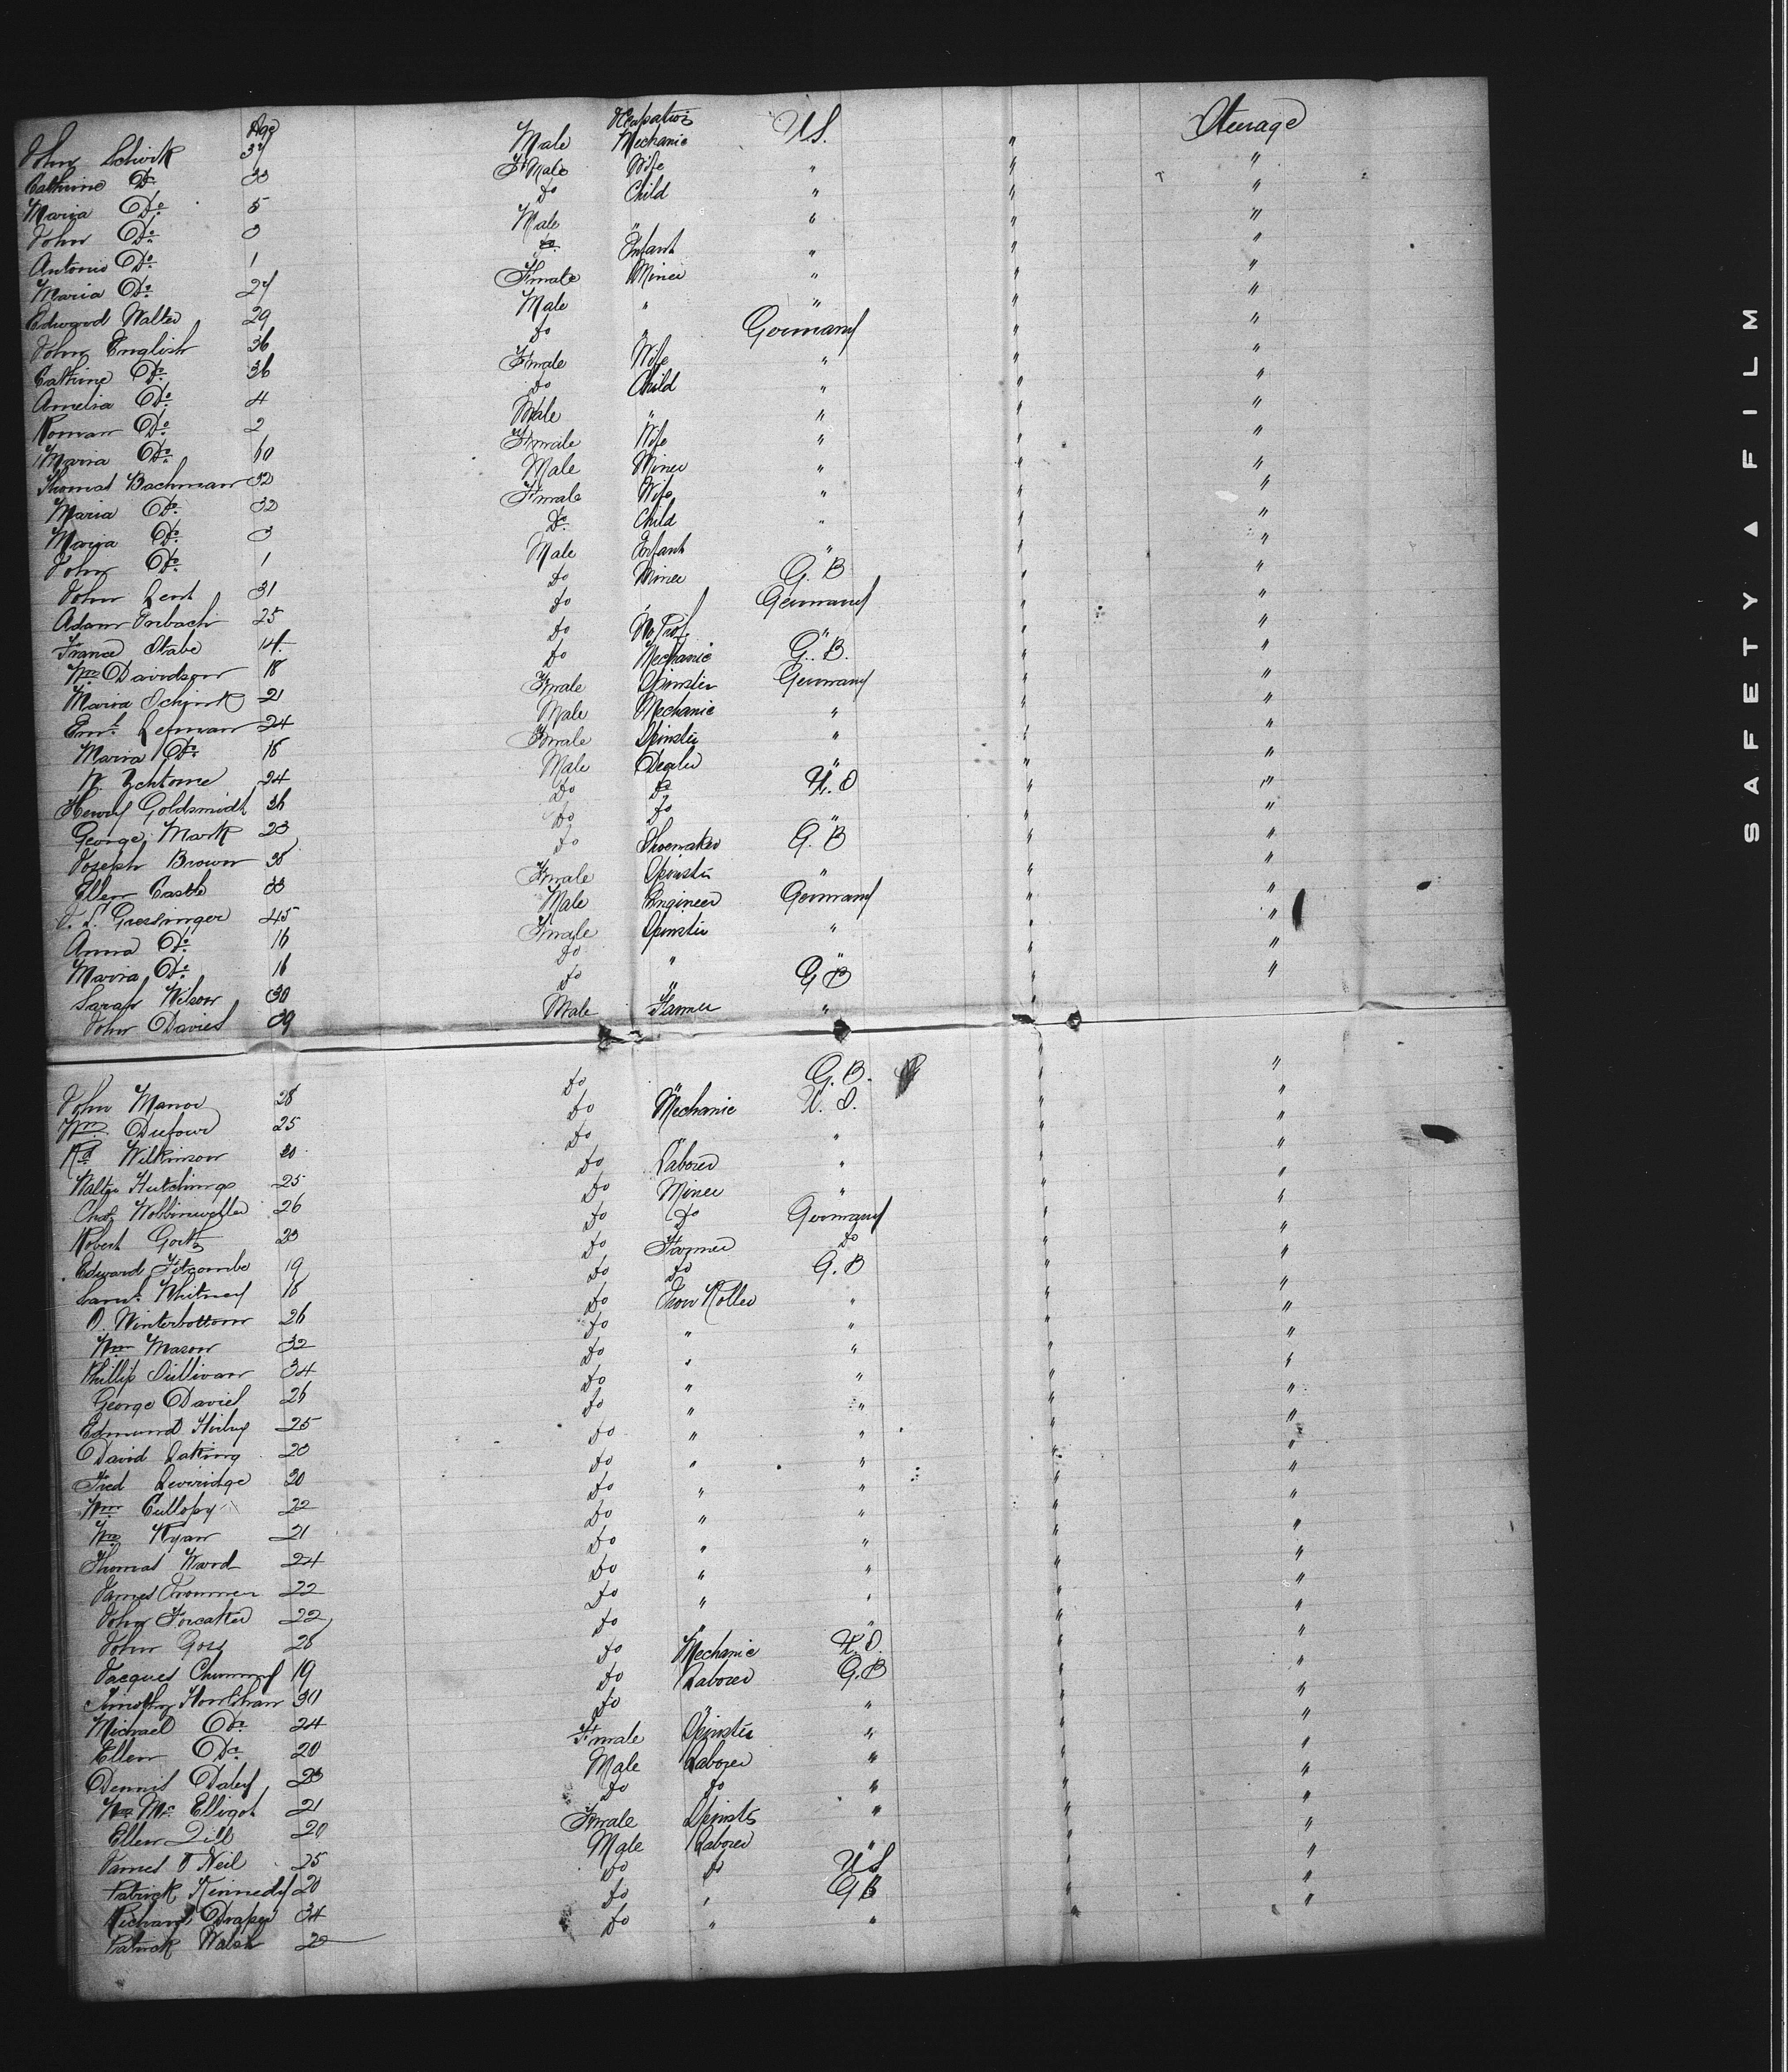 Age Occupation
John Schirk 37 Male Mechanic U.S. " Steerage
Cathrine Do 33 Female Wife " " "
Maria Do 5 Do Child " " "
John Do 3 Male " " " "
Antonio Do 1 Do Infant " " "
Maria Do 27 Female Miner " " "
Edward Walter 29 Male " " " "
John English 36 Do " Germany " "
Cathrine Do 36 Female Wife " " "
Amelia Do 4 Do Child " " "
Roman Do 2 Male " " " "
Maria Do 60 Female Wife " " "
Thomas Bachman 32 Male Miner " " "
Maria Do 32 Female Wife " " "
Maria Do 3 Do Child " " "
John Do 1 Male Infant " " "
John Lent 31 Do Miner G. B " "
Adam 25 Do " Germany " "
France Stabe 14 Do No Prof. " " "
Wm Davidson 18 Do Mechanic G. B. " "
Maria Schink 21 Female Spinster Germany " "
Eml Lefman 24 Male Mechanic " " "
Maria Do 18 Female Spinster " " "
W. 24 Male Dealer " " "
Henry Goldsmidt 36 Do Do U. S " "
George Mark 23 Do Do " " "
Joseph Brown 38 Do Shoemaker G. B " "
Ellen Castle 33 Female Spinster " " "
Greesinger 45 Male Engineer Germany " "
Anna Do 16 Female Spinster " " "
Maria Do 16 Do " " " "
Sarah Wilson 30 Do " G B " "
John Davies 39 Male Farmer " " "
John Manor 28 Do " G. B. " "
Wm Dufour 25 Do Mechanic U. S. " "
Rd Wilkinson 30 Do " " " "
Walter Hutchings 25 Do Laborer " " "
Chas 26 Do Miner " " "
Robert Goetz 23 Do Do Germany " "
Edward Titcombe 19 Do Farmer Do " "
Saml Whitney 18 Do Do G. B " "
O. Winterbottom 26 Do Iron Roller " " "
Wm Mason 32 Do " " " "
Phillip Sullivan 34 Do " " " "
George Davies 26 Do " " " "
Edmund 25 Do " " " "
David Laking 23 Do " " " "
Fred Leveridge 20 Do " " " "
Wm Cullopy 22 Do " " " "
Wm Ryan 21 Do " " " "
Thomas Ward 24 Do " " " "
James 22 Do " " " "
John 22 Do " " " "
John Goss 28 Do " " " "
Jacques 19 Do Mechanic U.S. " "
Timothy Hourihan 30 Do Laborer G.B " "
Michael Do 24 Do " " " "
Ellen Do 20 Female Spinster " " "
Dennis Daley 23 Male Laborer " " "
Wm Mc Elligot 21 Do Do " " "
Ellen Dill 20 Female Spinster " " "
James O Neil 25 Male Laborer " " "
Patrick Kennedy 20 Do Do U S " "
Richard Draper 34 Do " G B " "
Patrick Walsh 22 Do " " " "
SAFETY ▲ FILM